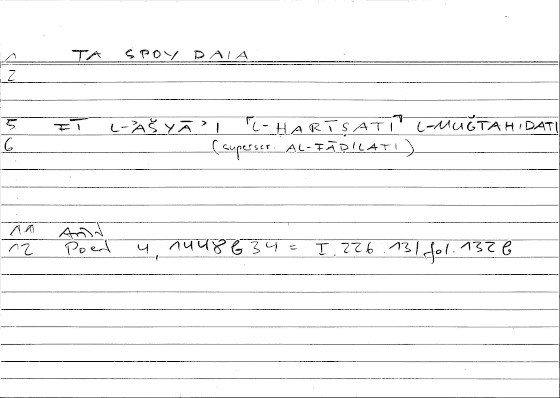 1 TA SPOY DAIA
2
5 FĪ L-ʾAŠYĀʾI ⌜L-ḤARĪṢATI⌝ L-MUǦTAHIDATI
6 (superscr. AL-FĀḌILATI)
11
12 Poet 4, 1448b34 = I.226.13/fol. 132b